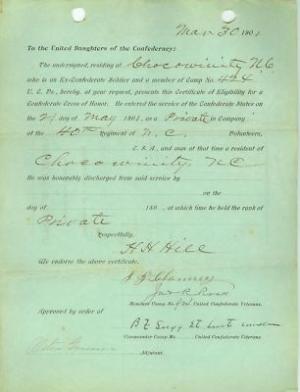 Mar 30 1901
To the United Daughters of the Confederacy:
The undersigned, residing at Chocowinity NC
who is an Ex-Confederate Soldier and a member of Camp No. 424
U. C. Vs., hereby, at your request, presents this Certificate of Eligibility for a
Confederate Cross of Honor. He entered the service of the Confederate States on
the 21 day of May 1861, as a Private in Company
of the 40th Regiment of N. C. Volunteers,
C. S. A., and was at that time a resident of
Chocowinity, NC
He was honorably discharged from said service by
on the
day of 186 , at which time he held the rank of
Private
Respectfully,
H H Hill
We endorse the above certificate.
Members Camp No. United Confederate Veterans.
Approved by order of
Commander Camp No. United Confederate Veterans
Adjutant.